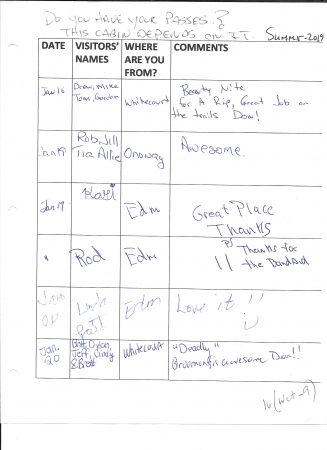 Do you Have your Passes.?
This Cabin Depends on IT. Summer-2019
DATE VISITORS' NAMES WHERE ARE YOU FROM? COMMENTS
Jan 16 Drew, Mike Tom, Gordon Whitecourt Beauty Nite
for A Rip, Great Job on
the trails Dow!
Jan 19 Rob, Jill
Tia Allie Onoway Awesome.
Jan 19 Kari Edm Great Place
Thanks
" Rod Edm PS Thanks for
the Bandaid
Edm Love it !!
Jan. 20 Whitecourt "Deadly"
Jeff, Cindy
& Brett awesome Dow!!